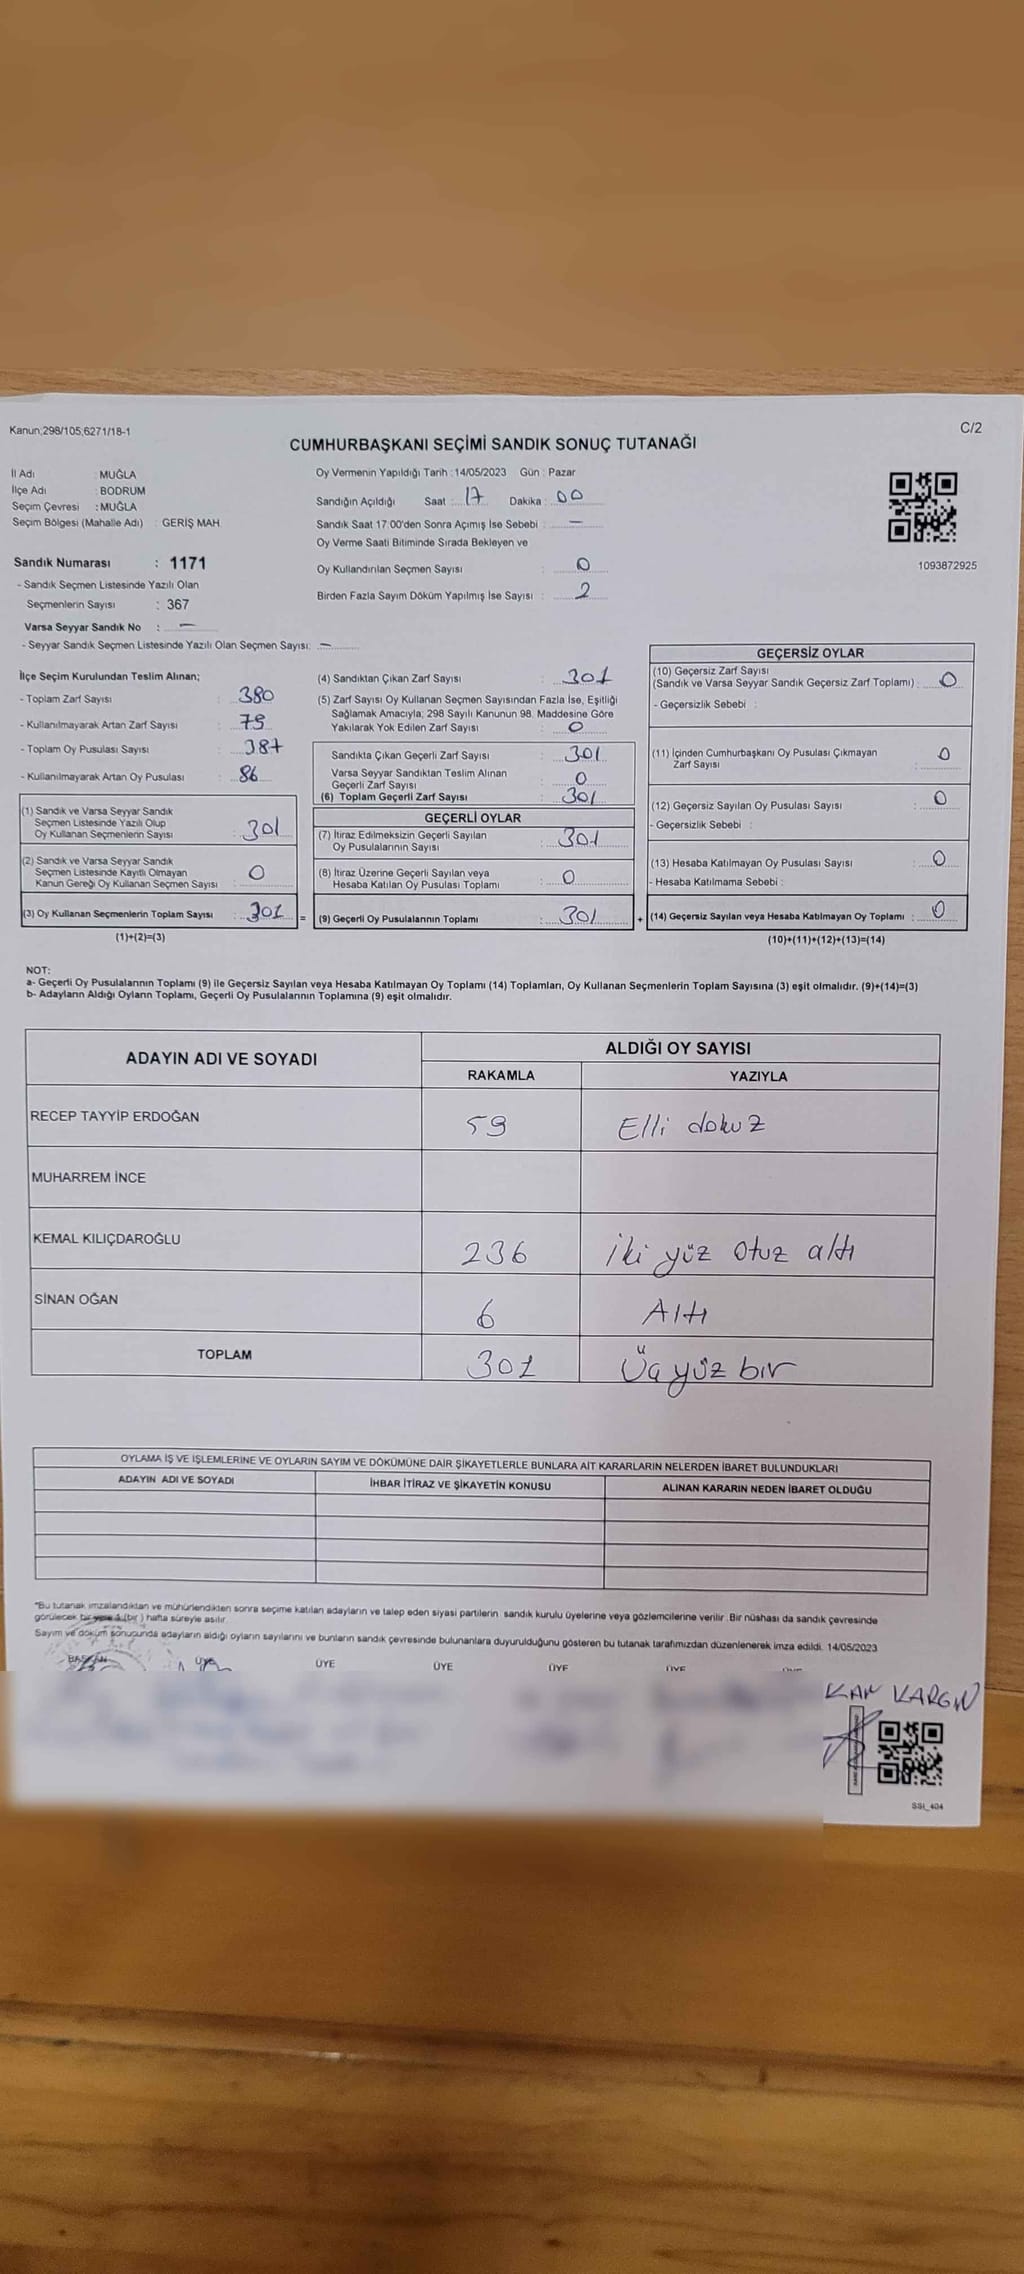 Kanun;298/105,6271/18-1
C/2
CUMHURBAŞKANI SEÇİMİ SANDIK SONUÇ TUTANAĞI
İl Adı : MUĞLA
İlçe Adı : BODRUM
Seçim Çevresi : MUĞLA
Seçim Bölgesi (Mahalle Adı) : GERİŞ MAH
Sandık Numarası : 1171
- Sandık Seçmen Listesinde Yazılı Olan
Seçmenlerin Sayısı : 367
Varsa Seyyar Sandık No : —
- Seyyar Sandık Seçmen Listesinde Yazılı Olan Seçmen Sayısı: —
Oy Vermenin Yapıldığı Tarih : 14/05/2023 Gün : Pazar
Sandığın Açıldığı Saat : 17 Dakika : 00
Sandık Saat 17:00'den Sonra Açımış İse Sebebi : —
Oy Verme Saati Bitiminde Sırada Bekleyen ve
Oy Kullandırılan Seçmen Sayısı : 0
Birden Fazla Sayım Döküm Yapılmış İse Sayısı : 2
1093872925
İlçe Seçim Kurulundan Teslim Alınan;
- Toplam Zarf Sayısı : 380
- Kullanılmayarak Artan Zarf Sayısı : 79
- Toplam Oy Pusulası Sayısı : 387
- Kullanılmayarak Artan Oy Pusulası : 86
(1) Sandık ve Varsa Seyyar Sandık
Seçmen Listesinde Yazılı Olup
Oy Kullanan Seçmenlerin Sayısı : 301
(2) Sandık ve Varsa Seyyar Sandık
Seçmen Listesinde Kayıtlı Olmayan
Kanun Gereği Oy Kullanan Seçmen Sayısı : 0
(3) Oy Kullanan Seçmenlerin Toplam Sayısı : 301 =
(1)+(2)=(3)
(4) Sandıktan Çıkan Zarf Sayısı : 301
(5) Zarf Sayısı Oy Kullanan Seçmen Sayısından Fazla İse, Eşitliği
Sağlamak Amacıyla; 298 Sayılı Kanunun 98. Maddesine Göre
Yakılarak Yok Edilen Zarf Sayısı : 0
Sandıkta Çıkan Geçerli Zarf Sayısı : 301
Varsa Seyyar Sandıktan Teslim Alınan
Geçerli Zarf Sayısı : 0
(6) Toplam Geçerli Zarf Sayısı : 301
GEÇERLİ OYLAR
(7) İtiraz Edilmeksizin Geçerli Sayılan
Oy Pusulalarının Sayısı : 301
(8) İtiraz Üzerine Geçerli Sayılan veya
Hesaba Katılan Oy Pusulası Toplamı : 0
(9) Geçerli Oy Pusulalarının Toplamı : 301 +
GEÇERSİZ OYLAR
(10) Geçersiz Zarf Sayısı
(Sandık ve Varsa Seyyar Sandık Geçersiz Zarf Toplamı) : 0
- Geçersizlik Sebebi :
(11) İçinden Cumhurbaşkanı Oy Pusulası Çıkmayan
Zarf Sayısı : 0
(12) Geçersiz Sayılan Oy Pusulası Sayısı : 0
- Geçersizlik Sebebi :
(13) Hesaba Katılmayan Oy Pusulası Sayısı : 0
- Hesaba Katılmama Sebebi :
(14) Geçersiz Sayılan veya Hesaba Katılmayan Oy Toplamı : 0
(10)+(11)+(12)+(13)=(14)
NOT:
a- Geçerli Oy Pusulalarının Toplamı (9) ile Geçersiz Sayılan veya Hesaba Katılmayan Oy Toplamı (14) Toplamları, Oy Kullanan Seçmenlerin Toplam Sayısına (3) eşit olmalıdır. (9)+(14)=(3)
b- Adayların Aldığı Oyların Toplamı, Geçerli Oy Pusulalarının Toplamına (9) eşit olmalıdır.
ADAYIN ADI VE SOYADI
ALDIĞI OY SAYISI
RAKAMLA YAZIYLA
RECEP TAYYİP ERDOĞAN 59 Elli dokuz
MUHARREM İNCE
KEMAL KILIÇDAROĞLU 236 İki yüz otuz altı
SİNAN OĞAN 6 Altı
TOPLAM 301 Üç yüz bir
OYLAMA İŞ VE İŞLEMLERİNE VE OYLARIN SAYIM VE DÖKÜMÜNE DAİR ŞİKAYETLERLE BUNLARA AİT KARARLARIN NELERDEN İBARET BULUNDUKLARI
ADAYIN ADI VE SOYADI İHBAR İTİRAZ VE ŞİKAYETİN KONUSU ALINAN KARARIN NEDEN İBARET OLDUĞU
"Bu tutanak imzalandıktan ve mühürlendikten sonra seçime katılan adayların ve talep eden siyasi partilerin sandık kurulu üyelerine veya gözlemcilerine verilir .Bir nüshası da sandık çevresinde
görülecek bir yere 1 (bir ) hafta süreyle asılır.
Sayım ve döküm sonucunda adayların aldığı oyların sayılarını ve bunların sandık çevresinde bulunanlara duyurulduğunu gösteren bu tutanak tarafımızdan düzenlenerek imza edildi. 14/05/2023
BAŞKAN ÜYE ÜYE ÜYE ÜYE ÜYE
KARGIN
SSI_404